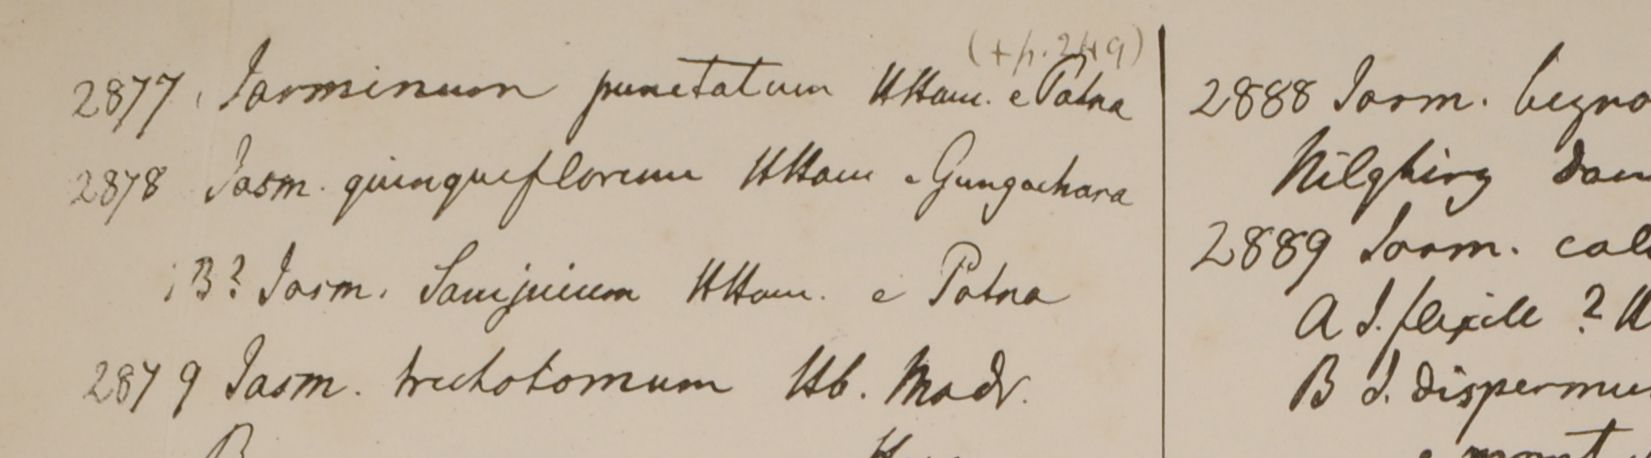 (+ p. 249)
2877 Jasminum punctatum HHam. e Patna
2878 Jasm. quinqueflorum HHam e Gungachara
B? Jasm. Samjuium HHam. e Patna
2879 Jasm. trichotomum Hb. Madr.
B
2888 Jasm.
Nilghiry Dan
2889 Jasm. cal
A J. flexile ? H
B J. dispermu
e mont